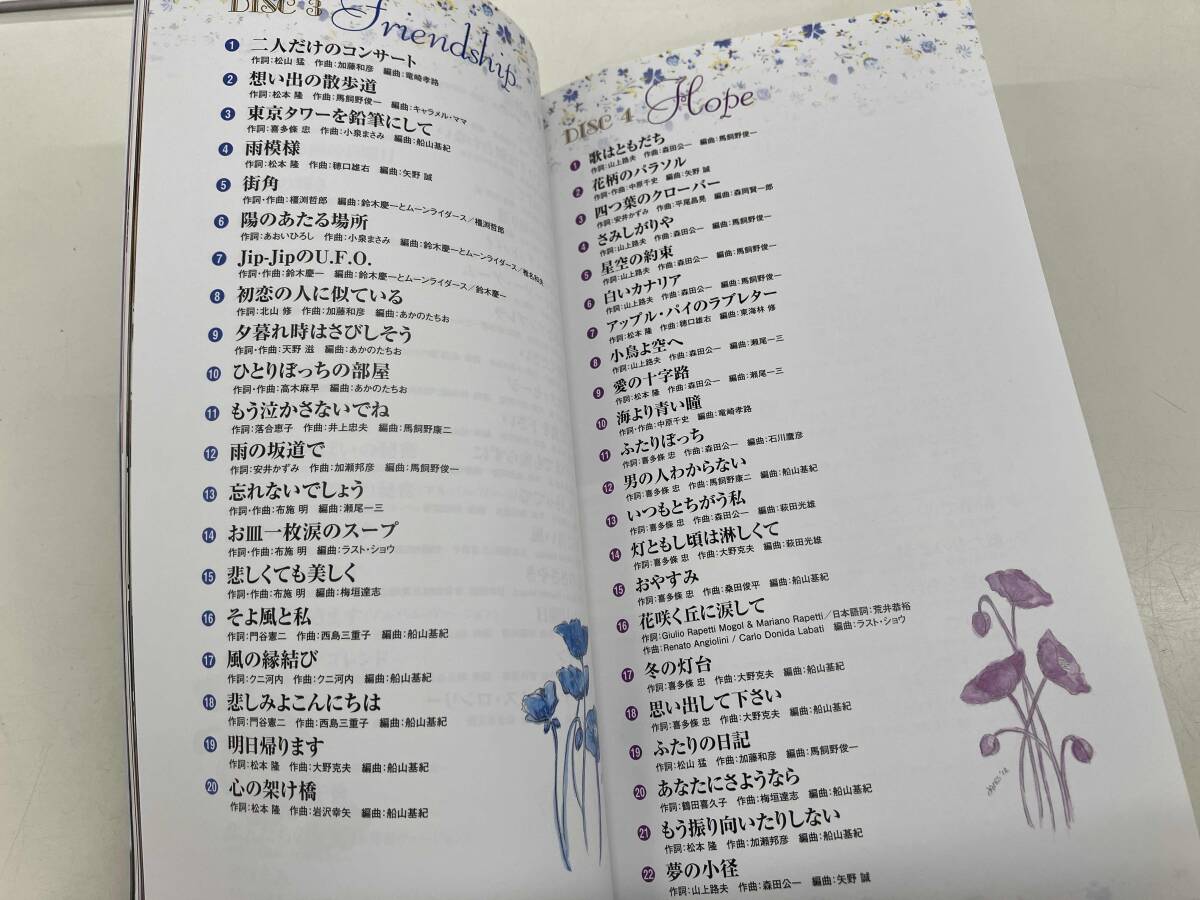 DISC 3 Friendship
1 二人だけのコンサート
作詞:松山 猛 作曲:加藤和彦 編曲:竜崎孝路
2 想い出の散歩道
作詞:松本 隆 作曲:馬飼野俊一 編曲:キャラメル・ママ
3 東京タワーを鉛筆にして
作詞:喜多條 忠 作曲:小泉まさみ 編曲:船山基紀
4 雨模様
作詞:松本 隆 作曲:穂口雄右 編曲:矢野 誠
5 街角
作詞・作曲:橿渕哲郎 編曲:鈴木慶一とムーンライダース/橿渕哲郎
6 陽のあたる場所
作詞:あおいひろし 作曲:小泉まさみ 編曲:鈴木慶一とムーンライダース/椎名和夫
7 Jip-JipのU.F.O.
作詞・作曲:鈴木慶一 編曲:鈴木慶一とムーンライダース/鈴木慶一
8 初恋の人に似ている
作詞:北山 修 作曲:加藤和彦 編曲:あかのたちお
9 夕暮れ時はさびしそう
作詞・作曲:天野 滋 編曲:あかのたちお
10 ひとりぼっちの部屋
作詞・作曲:高木麻早 編曲:あかのたちお
11 もう泣かさないでね
作詞:落合恵子 作曲:井上忠夫 編曲:馬飼野康二
12 雨の坂道で
作詞:安井かずみ 作曲:加瀬邦彦 編曲:馬飼野俊一
13 忘れないでしょう
作詞・作曲:布施 明 編曲:瀬尾一三
14 お皿一枚涙のスープ
作詞・作曲:布施 明 編曲:ラスト・ショウ
15 悲しくても美しく
作詞・作曲:布施 明 編曲:梅垣達志
16 そよ風と私
作詞:門谷憲二 作曲:西島三重子 編曲:船山基紀
17 風の縁結び
作詞:クニ河内 作曲:クニ河内 編曲:船山基紀
18 悲しみよこんにちは
作詞:門谷憲二 作曲:西島三重子 編曲:船山基紀
19 明日帰ります
作詞:松本 隆 作曲:大野克夫 編曲:船山基紀
20 心の架け橋
作詞:松本 隆 作曲:岩沢幸矢 編曲:船山基紀
DISC 4 Hope
1 歌はともだち
作詞:山上路夫 作曲:森田公一 編曲:馬飼野俊一
2 花柄のパラソル
作詞・作曲:中原千史 編曲:矢野 誠
3 四つ葉のクローバー
作詞:安井かずみ 作曲:平尾昌晃 編曲:森岡賢一郎
4 さみしがりや
作詞:山上路夫 作曲:森田公一 編曲:馬飼野俊一
5 星空の約束
作詞:山上路夫 作曲:森田公一 編曲:馬飼野俊一
6 白いカナリア
作詞:山上路夫 作曲:森田公一 編曲:馬飼野俊一
7 アップル・パイのラブレター
作詞:松本 隆 作曲:穂口雄右 編曲:東海林 修
8 小鳥よ空へ
作詞:山上路夫 作曲:森田公一 編曲:瀬尾一三
9 愛の十字路
作詞:松本 隆 作曲:森田公一 編曲:瀬尾一三
10 海より青い瞳
作詞・作曲:中原千史 編曲:竜崎孝路
11 ふたりぼっち
作詞:喜多條 忠 作曲:森田公一 編曲:石川鷹彦
12 男の人わからない
作詞:喜多條 忠 作曲:馬飼野康二 編曲:船山基紀
13 いつもとちがう私
作詞:喜多條 忠 作曲:森田公一 編曲:萩田光雄
14 灯ともし頃は淋しくて
作詞:喜多條 忠 作曲:大野克夫 編曲:萩田光雄
15 おやすみ
作詞:喜多條 忠 作曲:桑田俊平 編曲:船山基紀
16 花咲く丘に涙して
作詞:Giulio Rapetti Mogol & Mariano Rapetti/日本語詞:荒井恭裕
作曲:Renato Angiolini / Carlo Donida Labati 編曲:ラスト・ショウ
17 冬の灯台
作詞:喜多條 忠 作曲:大野克夫 編曲:船山基紀
18 思い出して下さい
作詞:喜多條 忠 作曲:大野克夫 編曲:船山基紀
19 ふたりの日記
作詞:松山 猛 作曲:加藤和彦 編曲:馬飼野俊一
20 あなたにさようなら
作詞:鶴田喜久子 作曲:梅垣達志 編曲:船山基紀
21 もう振り向いたりしない
作詞:松本 隆 作曲:加瀬邦彦 編曲:船山基紀
22 夢の小径
作詞:山上路夫 作曲:森田公一 編曲:矢野 誠